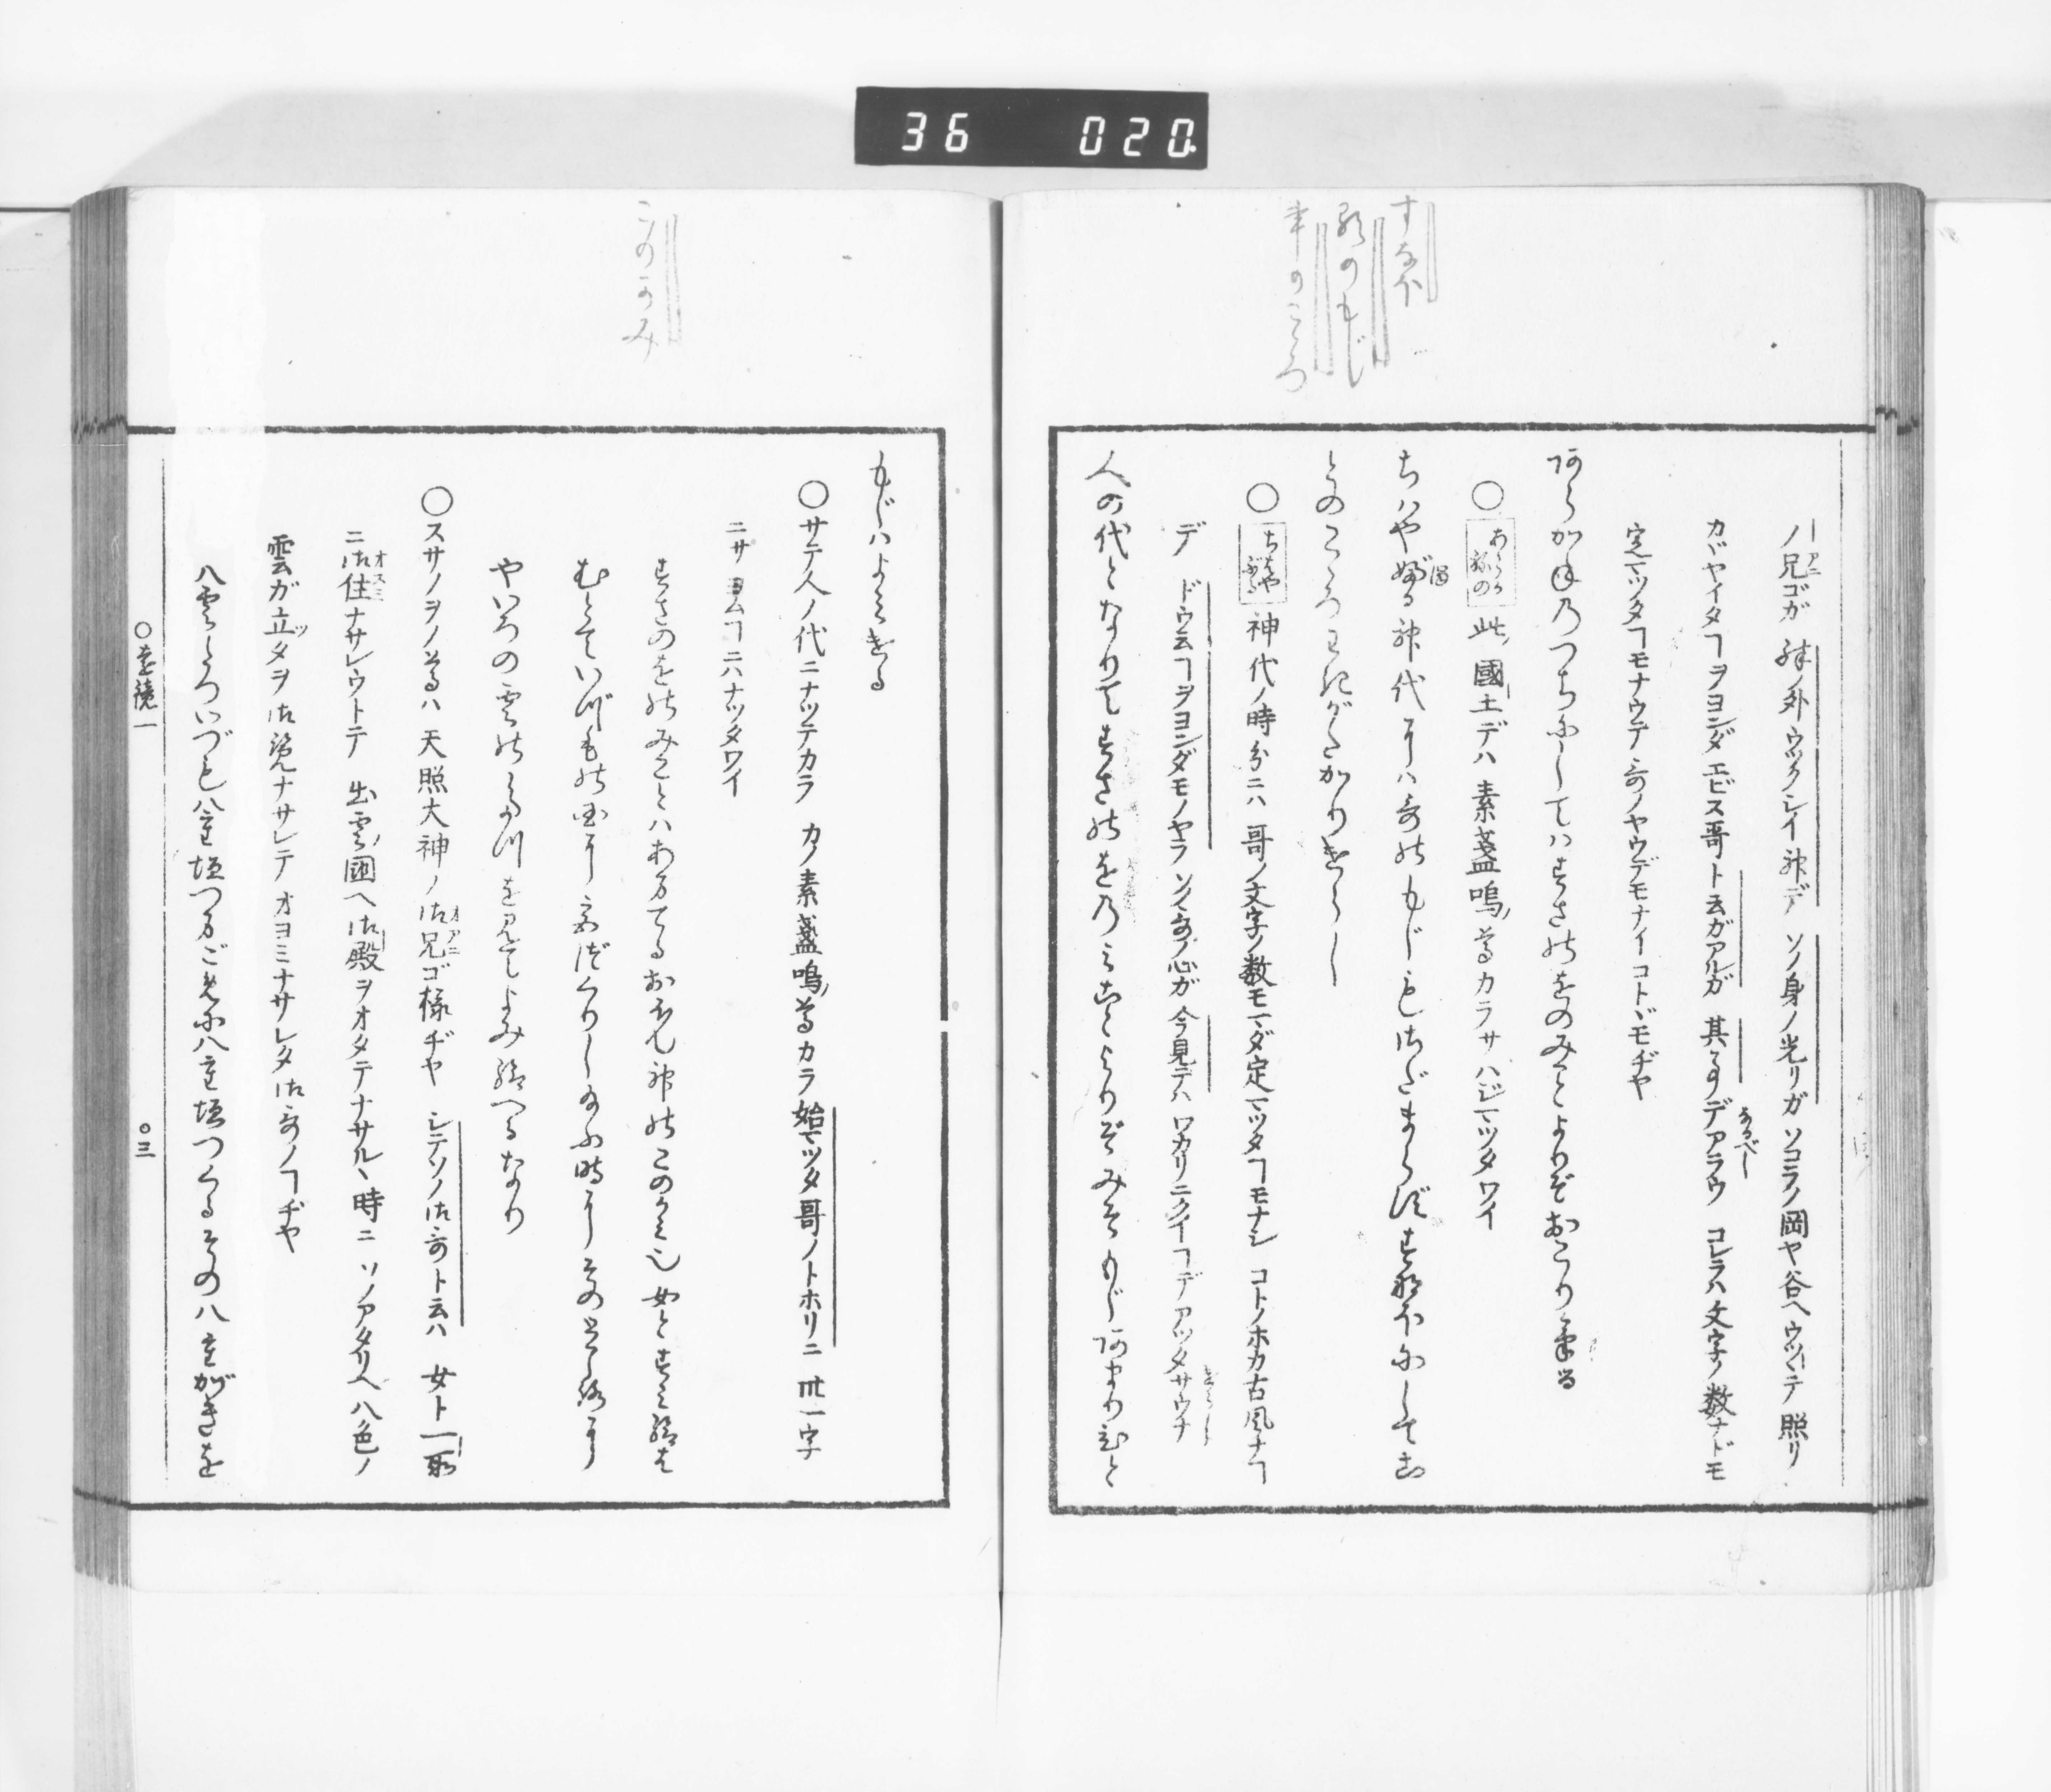 36 020
すなほ
歌のもじ
事のこゝろ
ノ兄ゴガ 殊ノ外ウツクシイ神デ ソノ身ノ光リガ ソコラノ岡ヤ谷ヘウツヽテ 照リ
カヾヤイタヿヲヨンダ エビス哥ト云ガアルガ 其事デアラウ コレラハ文字ノ数ナドモ
なるべし
定マツタヿモナウテ 哥ノヤウデモナイ コトヾモヂヤ
あらかねのつちにしてはすさのをのみことよりぞおこりける
○ あらかねの 此ノ國土デハ 素盞嗚ノ尊カラサ ハジマツタワイ
ちはやぶる神代には哥のもじもさだまらずすなほにしてこ
とのこゝろわきがたかりけらし
○ ちはやぶる 神代ノ時分ニハ 哥ノ文字ノ数モマダ定マツタヿモナシ コトノホカ古風ナヿ
デ ドウ云ヿヲヨンダモノヤラ ソノ哥ノ心ガ 今見テハ ワカリニクイヿデアツタサウナ
けらし
人の代となりてすさのをのみことよりぞみそもじあまりひと
このかみ
もじはよみける
○サテ人ノ代ニナツテカラ カノ素盞嗚ノ尊カラ 始マツタ哥ノトホリニ 丗一字
ニサ ヨムヿニハナツタワイ
すさのをのみことはあまてるおほん神のこのかみ也女とすみ給は
むとていづもの国に宮づくりし給ふ時にその所に
やいろの雲のたつを見てよみ給へるなり
○スサノヲノ尊ハ 天照大神ノ御兄ゴ様ヂヤ シテソノ御哥ト云ハ 女ト一所
オアニ
ニ御住ナサレウトテ 出雲ノ國ヘ御殿ヲオタテナサルヽ時ニ ソノアタリヘ八色ノ
オスミ
雲ガ立ツタヲ御覧ナサレテ オヨミナサレタ御哥ノヿヂヤ
八雲たついづも八重垣つまごめに八重垣つくるその八重がきを
○遠鏡一 ○三